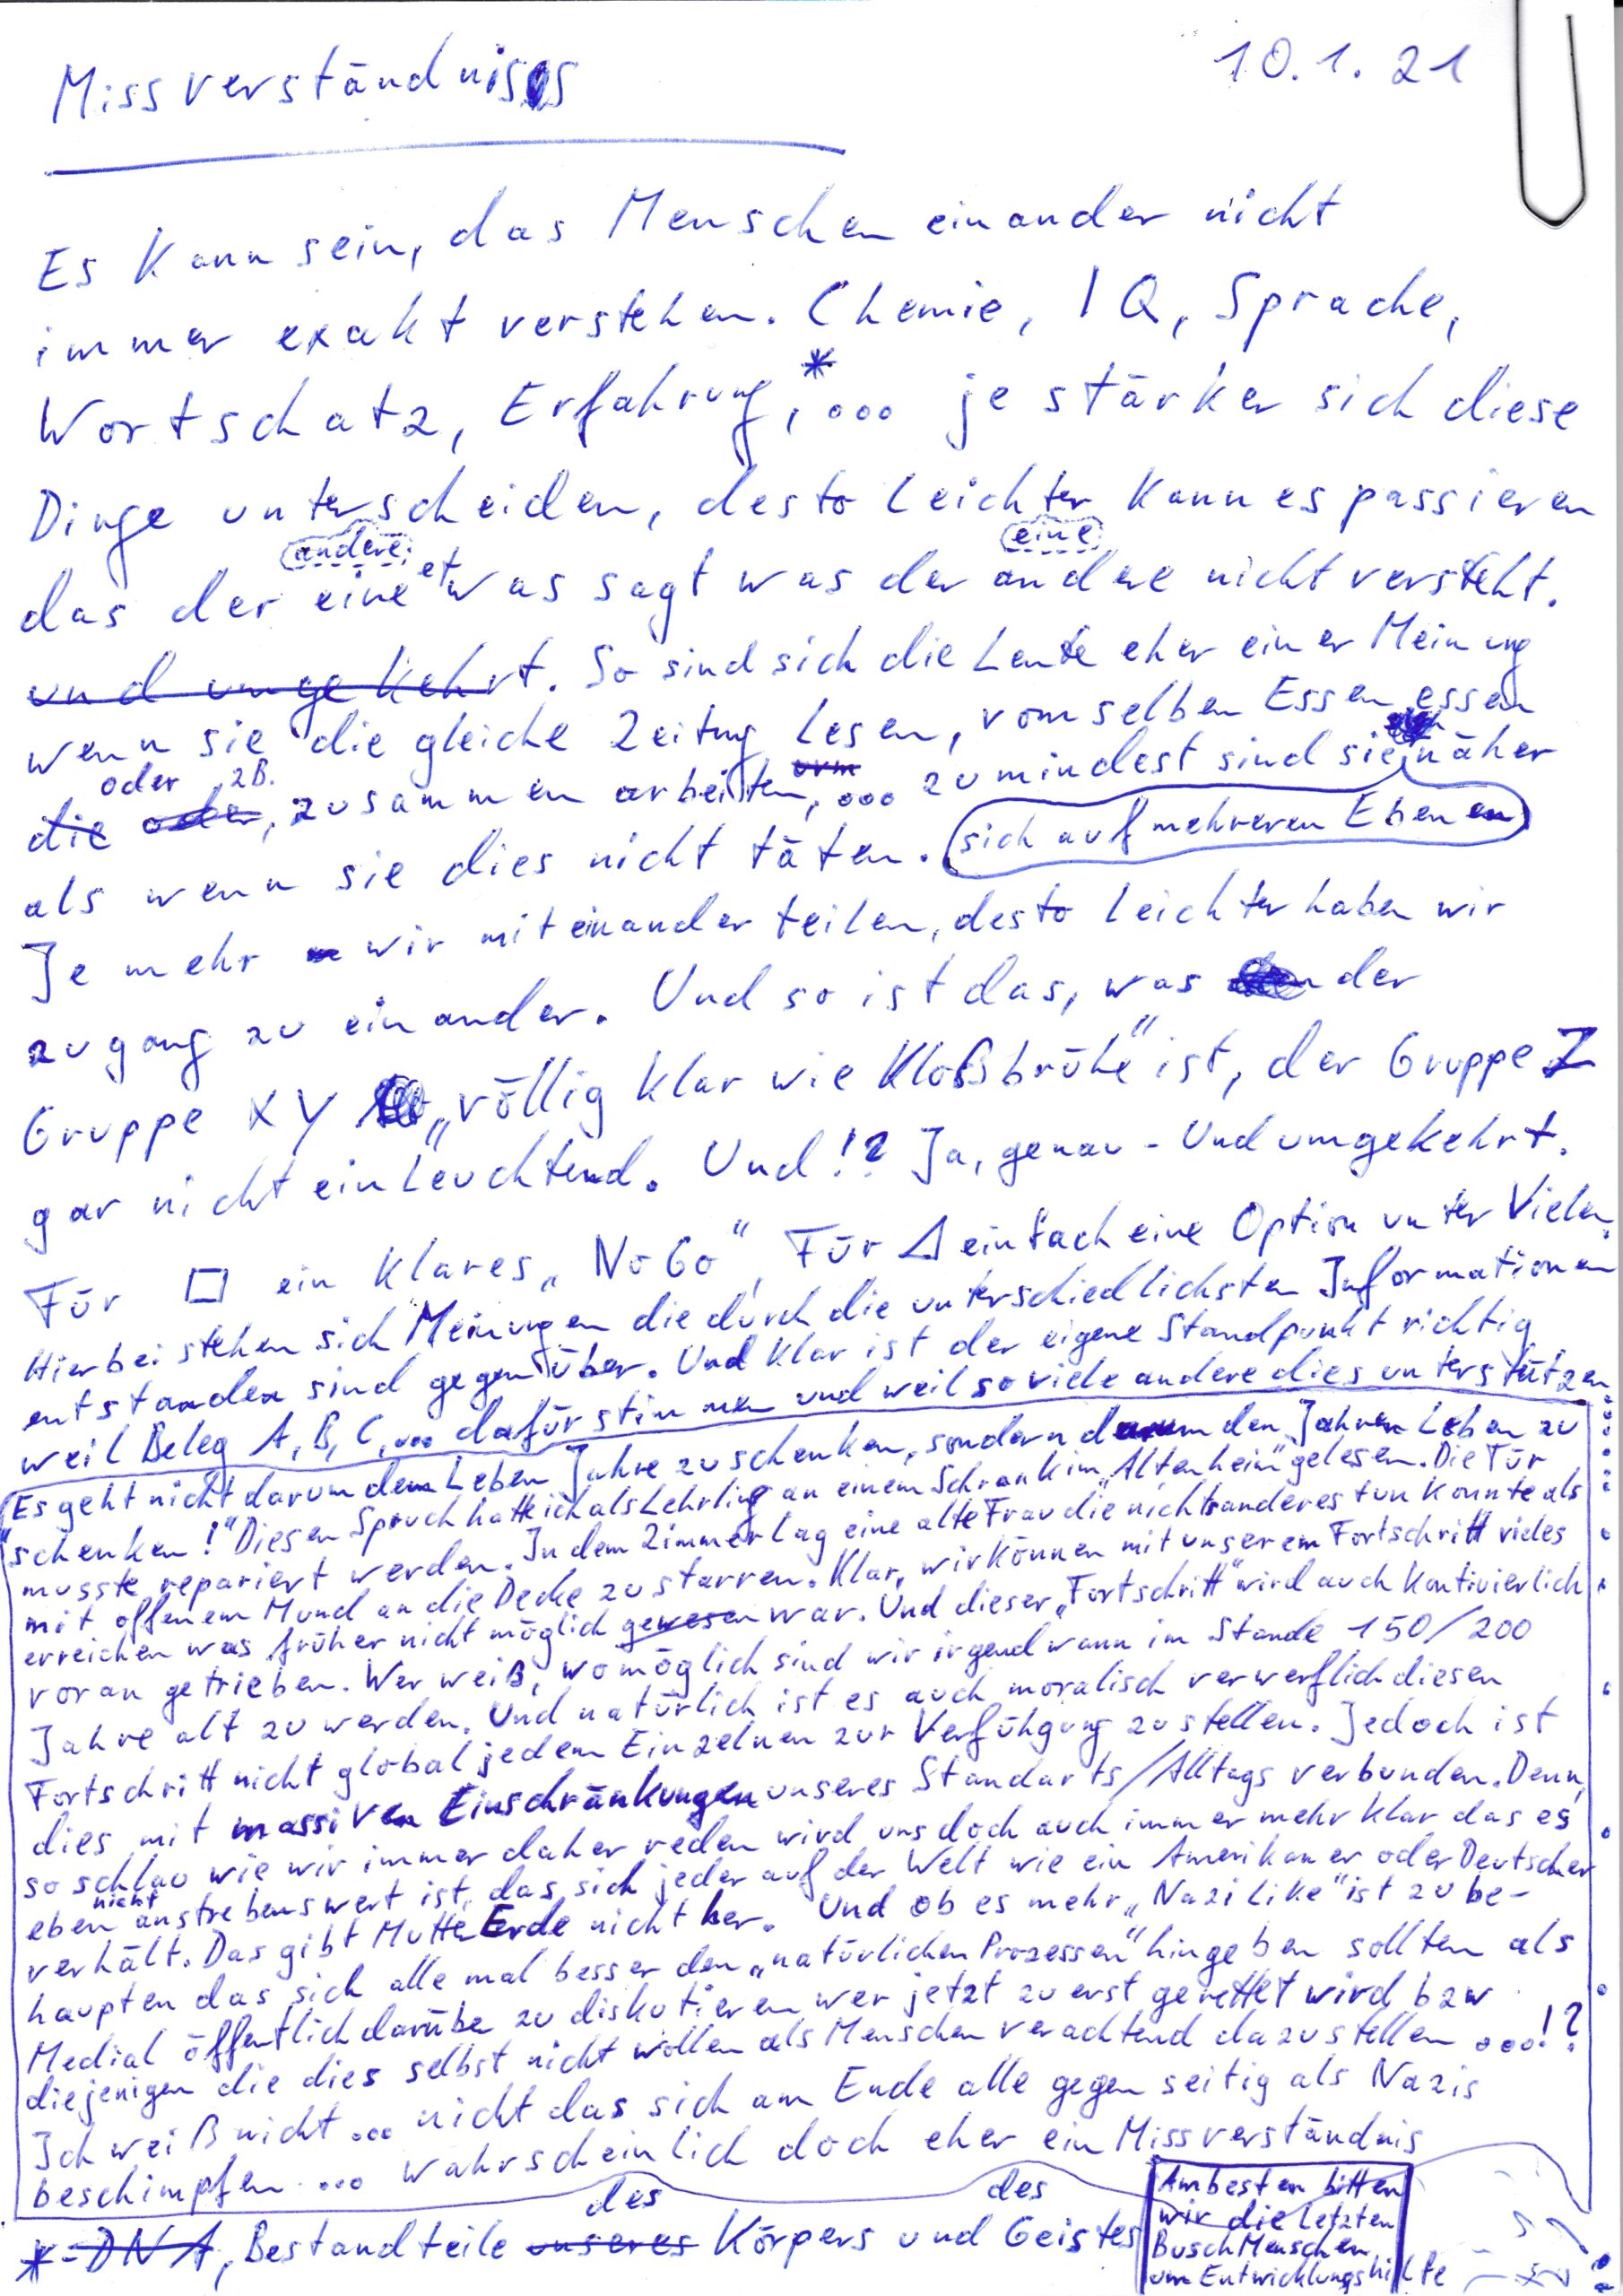 10.1.21
Missverständniss
Es kann sein, das Menschen einander nicht
immer exakt verstehen. Chemie, IQ, Sprache,
Wortschatz, Erfahrung,*... je stärker sich diese
Dinge unterscheiden, desto leichter kann es passieren
andere eine
das der eine etwas sagt was der andere nicht versteht.
und umgekehrt. So sind sich die Leute eher einer Meinung
wenn sie die gleiche Zeitung lesen, vom selben Essen essen
oder zB.
die oder, zusammen arbeiten,... zumindest sind sie näher
als wenn sie dies nicht täten. sich auf mehreren Ebenen
Je mehr wir miteinander teilen, desto leichter haben wir
zugang zu einander. Und so ist das, was der
Gruppe XY „völlig klar wie Kloßbrühe" ist, der Gruppe Z
gar nicht einleuchtend. Und!? Ja, genau - Und umgekehrt.
Für □ ein klares „NoGo", Für Δ einfach eine Option unter Vielen.
Hierbei stehen sich Meinungen die durch die unterschiedlichsten Informationen
entstanden sind gegenüber. Und klar ist der eigene Standpunkt richtig
weil Beleg A, B, C,... dafür stimmen und weil so viele andere dies unterstützen.
"Es geht nicht darum dem Leben Jahre zu schenken, sondern darum den Jahren Leben zu
schenken!" Diesen Spruch hatte ich als Lehrling an einem Schrank im „Altenheim" gelesen. Die Tür
musste repariert werden. In dem Zimmer lag eine alte Frau die nichts anderes tun konnte als
mit offenem Mund an die Decke zu starren. Klar, wir können mit unserem Fortschritt vieles
erreichen was früher nicht möglich gewesen war. Und dieser „Fortschritt" wird auch kontinuierlich
voran getrieben. Wer weiß, womöglich sind wir irgendwann im Stande 150/200
Jahre alt zu werden. Und natürlich ist es auch moralisch verwerflich diesen
Fortschritt nicht global jedem Einzelnen zur Verfühgung zu stellen. Jedoch ist
dies mit massiven Einschränkungen unseres Standarts/Alltags verbunden. Denn,
so schlau wie wir immer daher reden wird uns doch auch immer mehr klar das es
nicht
eben anstrebenswert ist, das sich jeder auf der Welt wie ein Amerikaner oder Deutscher
verhält. Das gibt Mutter Erde nicht her. Und ob es mehr „Nazi like" ist zu be-
haupten das sich alle mal besser den „natürlichen Prozessen" hingeben sollten als
Medial öffentlich darüber zu diskutieren wer jetzt zuerst gerettet wird bzw
diejenigen die dies selbst nicht wollen als Menschen verachtend dazustellen ...!?
Ich weiß nicht ... nicht das sich am Ende alle gegenseitig als Nazis
beschimpfen ... wahrscheinlich doch eher ein Missverständnis
des des
*-DNA, Bestandteile unseres Körpers und Geistes
Am besten bitten
wir die letzten
BuschMenschen
um Entwicklungshilfe